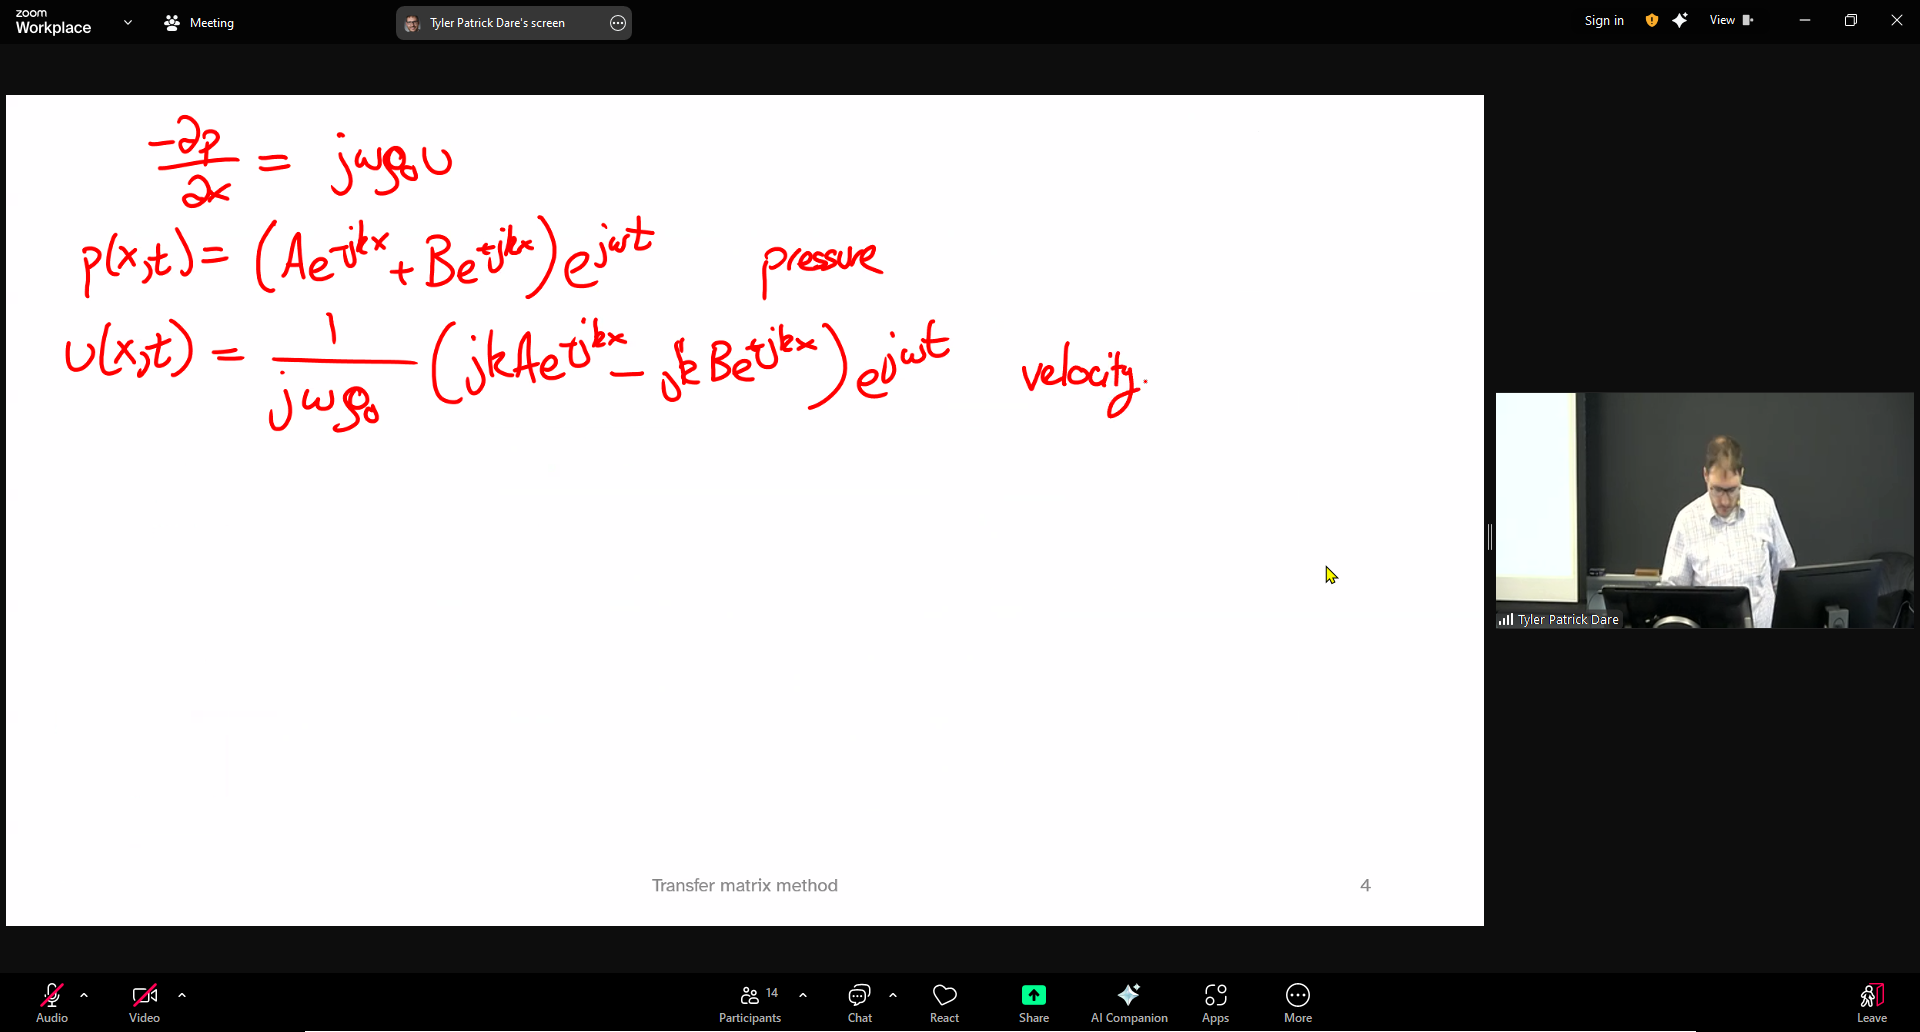 zoom
Workplace
Meeting
Tyler Patrick Dare's screen
Sign in
View
-∂p/∂x = jωρ₀u
p(x,t) = (Ae^{-jkx} + Be^{+jkx})e^{jωt} pressure
u(x,t) = 1/(jωρ₀) (jkAe^{-jkx} - jkBe^{+jkx})e^{jωt} velocity.
Tyler Patrick Dare
Transfer matrix method 4
Audio
Video
Participants 14
Chat
React
Share
AI Companion
Apps
More
Leave